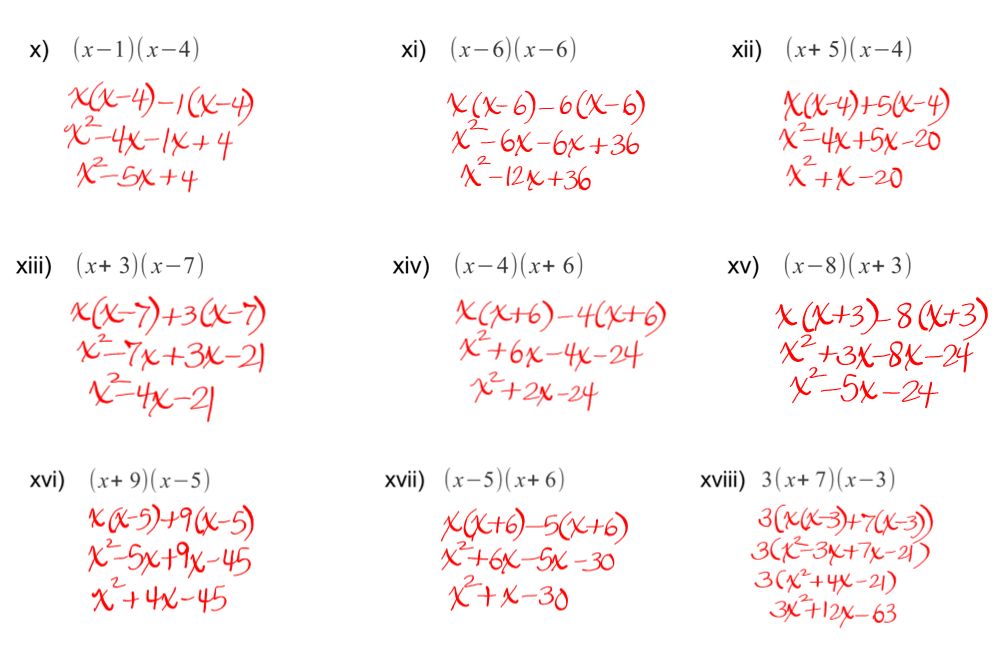 x) (x−1)(x−4)
x(x−4)−1(x−4)
x²−4x−1x+4
x²−5x+4
xi) (x−6)(x−6)
x(x−6)−6(x−6)
x²−6x−6x+36
x²−12x+36
xii) (x+ 5)(x−4)
x(x−4)+5(x−4)
x²−4x+5x−20
x²+x−20
xiii) (x+ 3)(x−7)
x(x−7)+3(x−7)
x²−7x+3x−21
x²−4x−21
xiv) (x−4)(x+ 6)
x(x+6)−4(x+6)
x²+6x−4x−24
x²+2x−24
xv) (x−8)(x+ 3)
x(x+3)−8(x+3)
x²+3x−8x−24
x²−5x−24
xvi) (x+ 9)(x−5)
x(x−5)+9(x−5)
x²−5x+9x−45
x²+4x−45
xvii) (x−5)(x+ 6)
x(x+6)−5(x+6)
x²+6x−5x−30
x²+x−30
xviii) 3(x+ 7)(x−3)
3(x(x−3)+7(x−3))
3(x²−3x+7x−21)
3(x²+4x−21)
3x²+12x−63